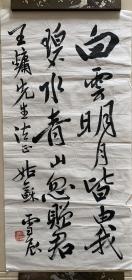 白雲明月皆由我
碧水青山忽贈君
王墉先生法正 姑蘇雪辰